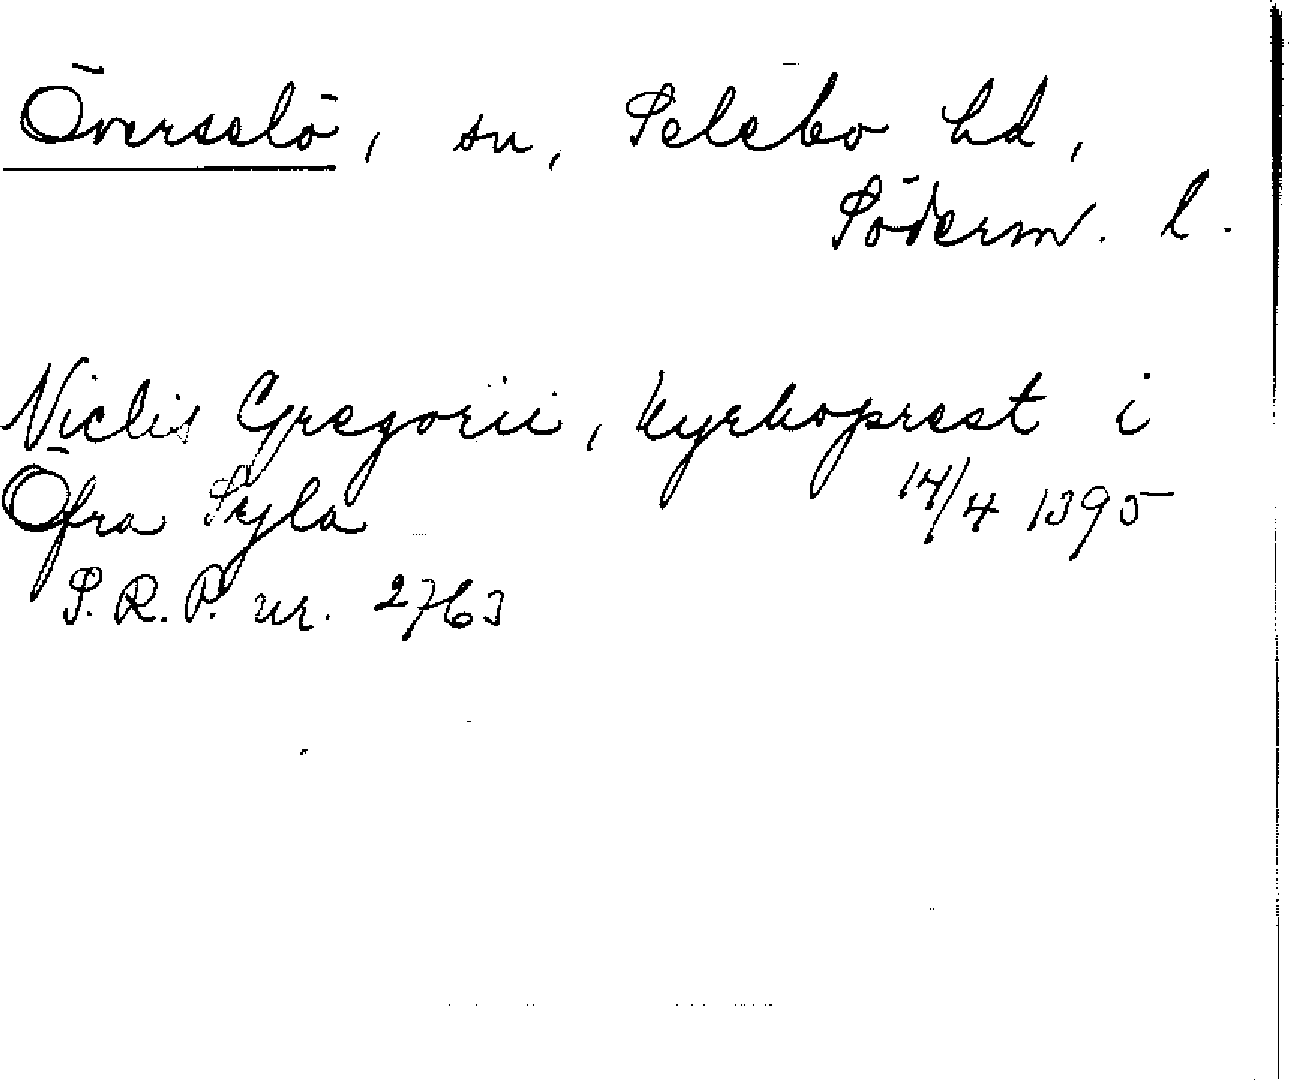 Överselö, sn, Selebo hd,
Söderm. l.
Niclis Gregorii, kyrkoprest i
Öfra Syla 14/4 1395
S. R. P. nr. 2763